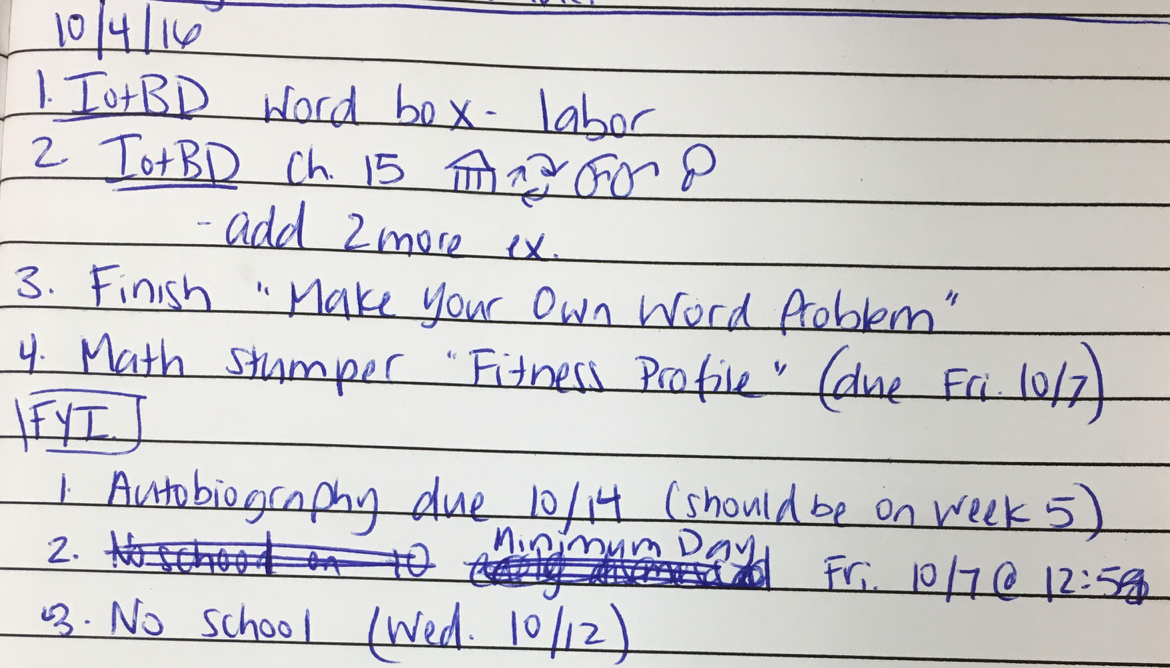 10/4/16
1. IotBD Word box - labor
2. IotBD Ch. 15
- add 2 more ex.
3. Finish "Make Your Own Word Problem"
4. Math Stumper "Fitness Profile" (due Fri. 10/7)
FYI
1. Autobiography due 10/14 (should be on week 5)
2. No school on 10 Minimum Day Fri. 10/7 @ 12:58
3. No school (Wed. 10/12)